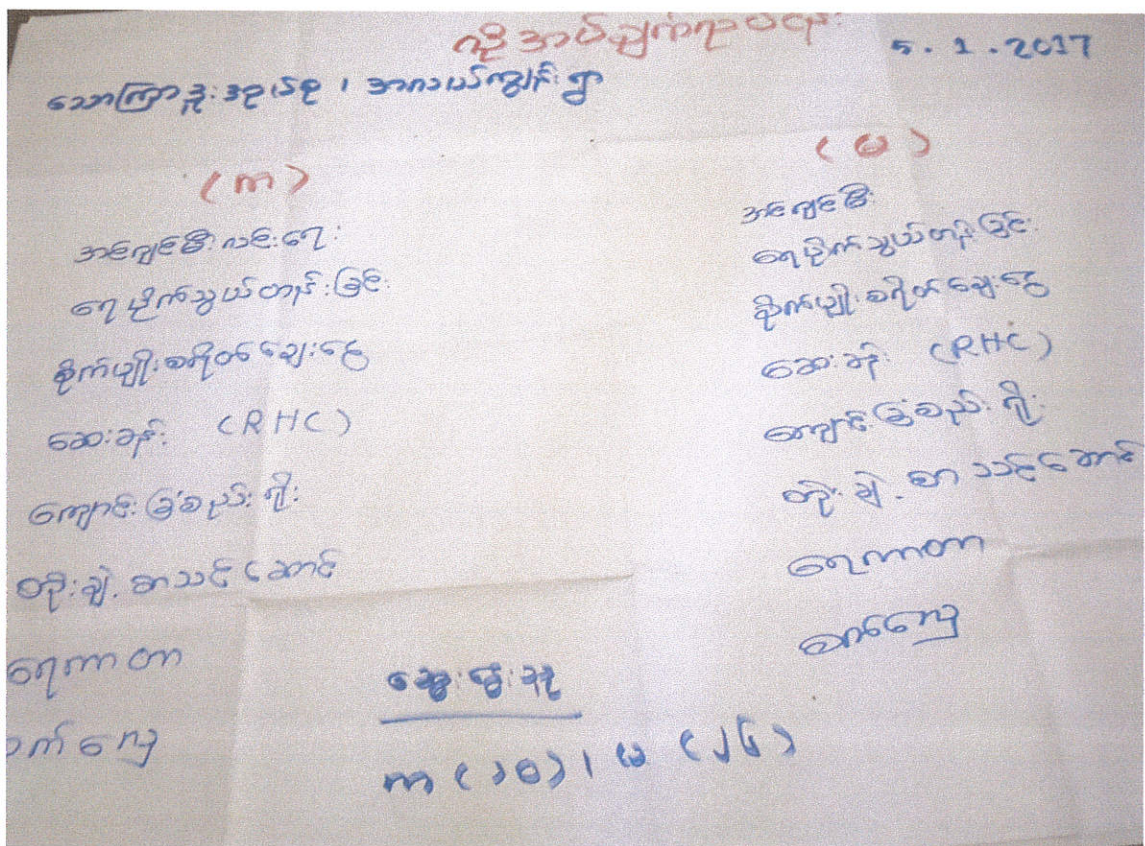 လိုအပ်ချက်ဥပဒေ
5.1.2017
သောကြာဒူးအုပ်စု၊ အလယ်ကျွန်းရွာ
(ကာ)
အင်ဂျင်မီးလင်းရေး
ရေပိုက်သွယ်တန်းခြင်း
စိုက်ပျိုးစရိတ်ချေးငွေ
ဆေးခန်း (RHC)
ကျောင်းခြံစည်းရိုး
တိုးချဲ့စာသင်ဆောင်
ရေကာတာ
စက်လှေ
(မ)
အင်ဂျင်မီး
ရေပိုက်သွယ်တန်းခြင်း
စိုက်ပျိုးစရိတ်ချေးငွေ
ဆေးခန်း (RHC)
ကျောင်းခြံစည်းရိုး
တိုးချဲ့စာသင်ဆောင်
ရေကာတာ
စက်လှေ
ဆွေးနွေးသူ
ကာ (၁၀)၊ မ (၂၆)